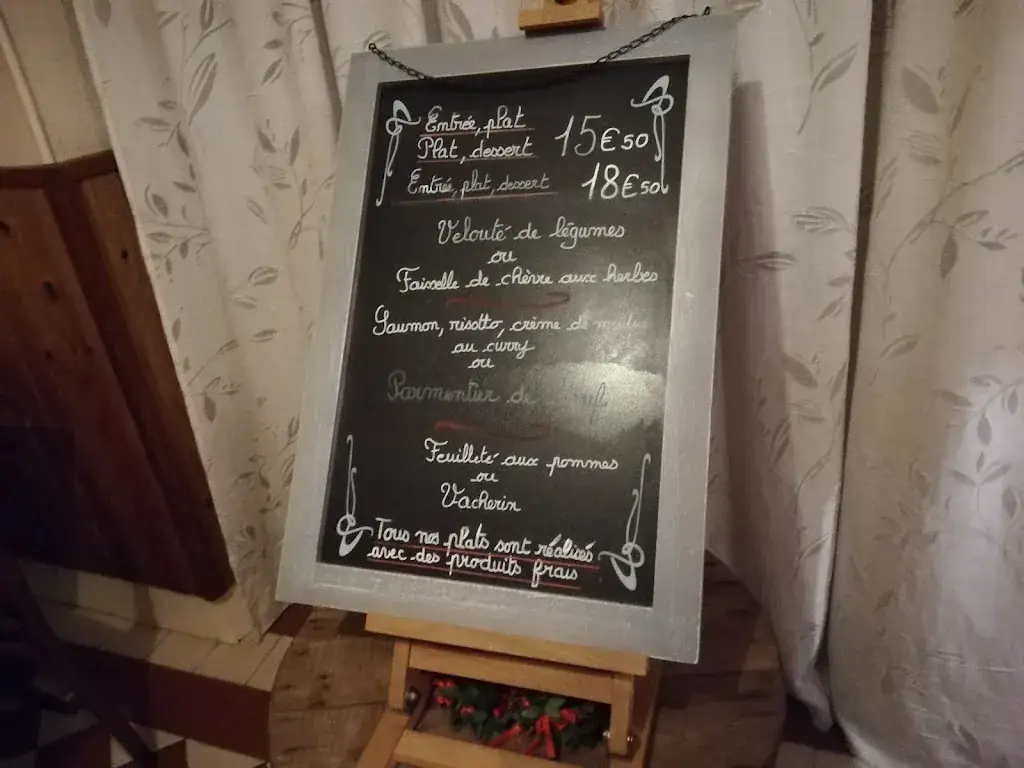 Entrée, plat
Plat, dessert 15€50
Entrée, plat, dessert 18€50
Velouté de légumes
ou
Faisselle de chèvre aux herbes
Saumon, risotto, crème de
au curry
ou
Parmentier de
Feuilleté aux pommes
ou
Vacherin
Tous nos plats sont réalisés
avec des produits frais